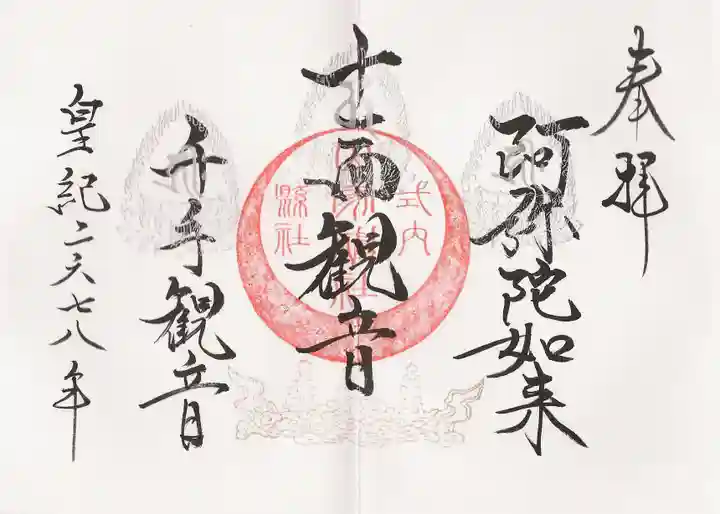 奉拝
阿弥陀如来
十一面観音
千手観音
皇紀二六七八年
式内
縣社